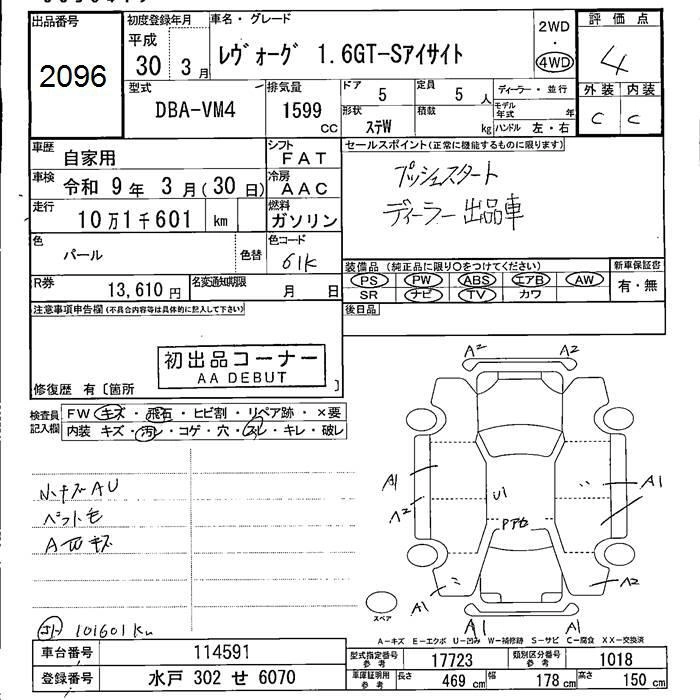 出品番号
2096
初度登録年月
平成
30 3月
車名・グレード
レヴォーグ 1.6GT-Sアイサイト
2WD
・
4WD
評価点
4
外装 内装
C C
型式
DBA-VM4
排気量
1599
cc
ドア 5
定員 5 人
形状 ステW
積載 kg
ディーラー・並行
モデル年式 年
ハンドル 左・右
車歴 自家用
シフト FAT
車検 令和 9年 3月(30日)
冷房 AAC
走行 10万1千601 km
燃料 ガソリン
色 パール 色替
色コード 61K
R券 13,610円
名変通知期限 月 日
セールスポイント(正常に機能するものに限ります)
プッシュスタート
ディーラー出品車
装備品(純正品に限り○をつけてください)
PS PW ABS エアB AW
SR ナビ TV カワ
新車保証書
有・無
後日品
注意事項申告欄(不具合内容等は具体的に記入して下さい)
初出品コーナー
AA DEBUT
修復歴 有〔箇所 〕
検査員記入欄
FW キズ・飛石・ヒビ割・リペア跡・×要
内装 キズ・汚レ・コゲ・穴・スレ・キレ・破レ
小キズAU
ペット毛
101601Km
A2 A2
A1
A2
U1
A1
Pアセ
A1
A2
A1 A1
スペア
A−キズ E−エクボ U−凹み W−補修跡 S−サビ C−腐食 XX−交換済
車台番号 114591
型式指定番号参考 17723
類別区分番号参考 1018
登録番号 水戸 302 せ 6070
車庫証明用参考 長さ 469 cm 幅 178 cm 高さ 150 cm